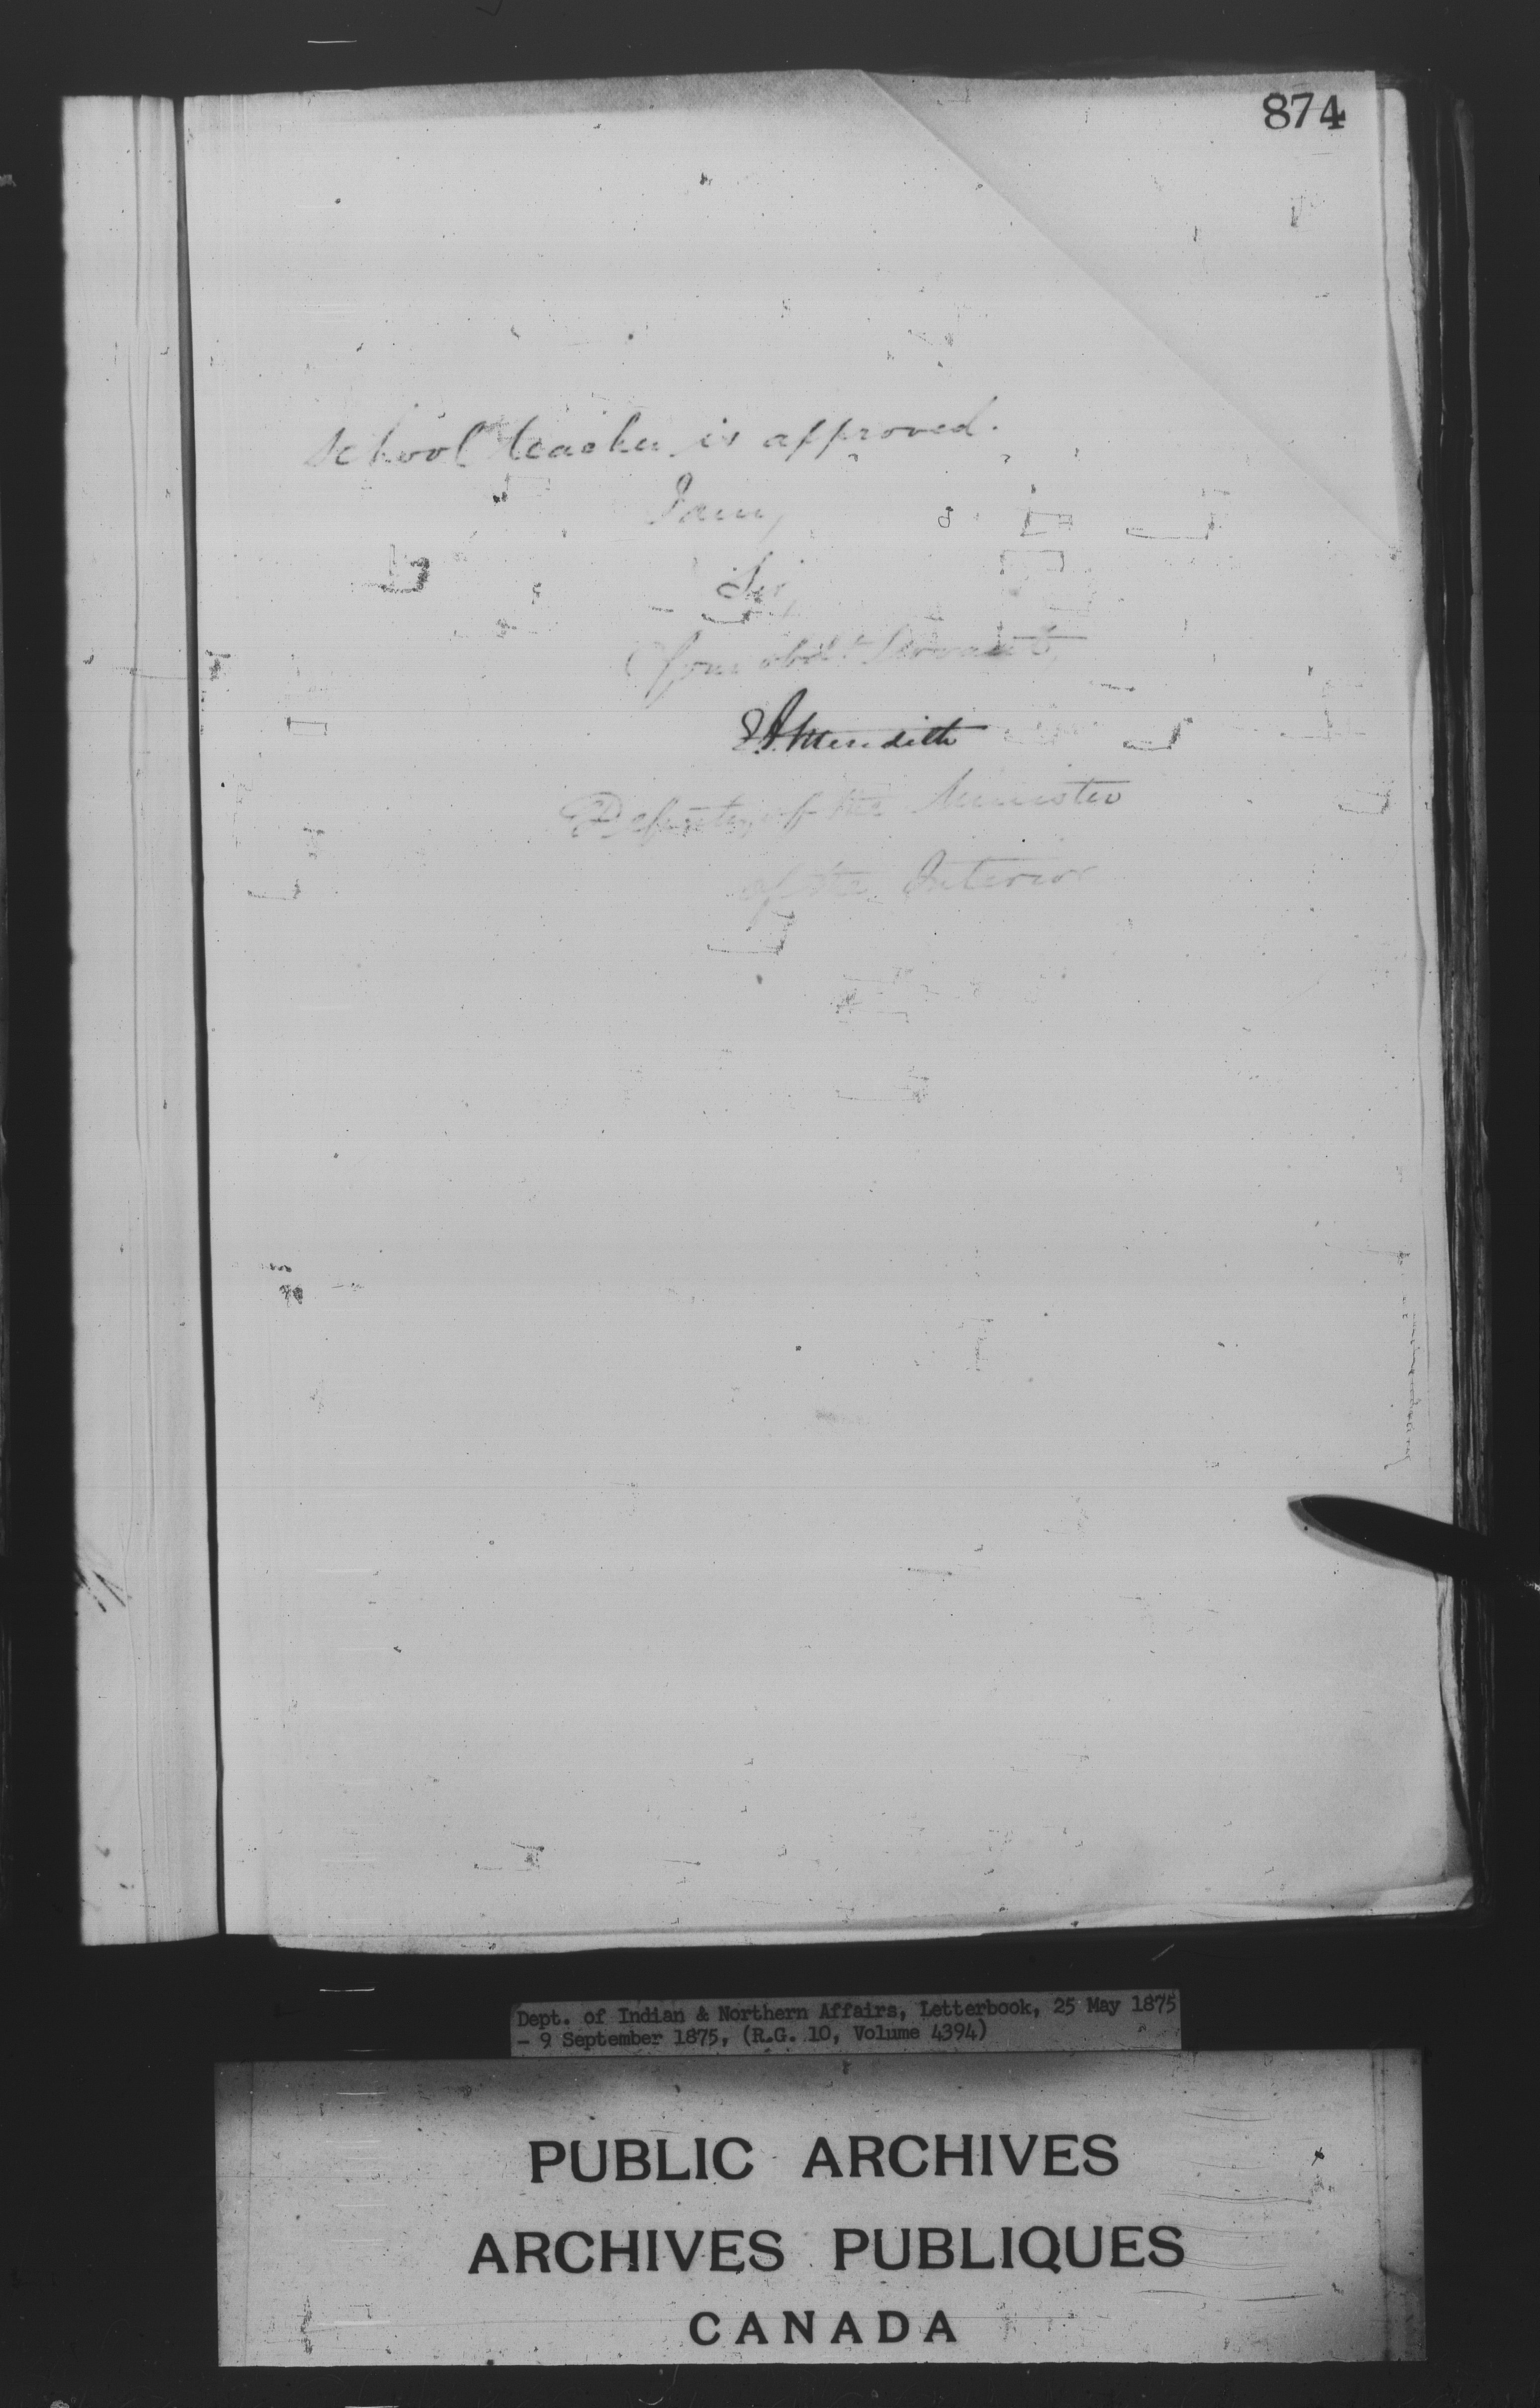 874
School teacher is approved.
I am,
Sir,
Your obdt. Servant,
E.A. Meredith
Deputy of the Minister
of the Interior
Dept. of Indian & Northern Affairs, Letterbook, 25 May 1875
- 9 September 1875, (R.G. 10, Volume 4394)
PUBLIC ARCHIVES
ARCHIVES PUBLIQUES
CANADA